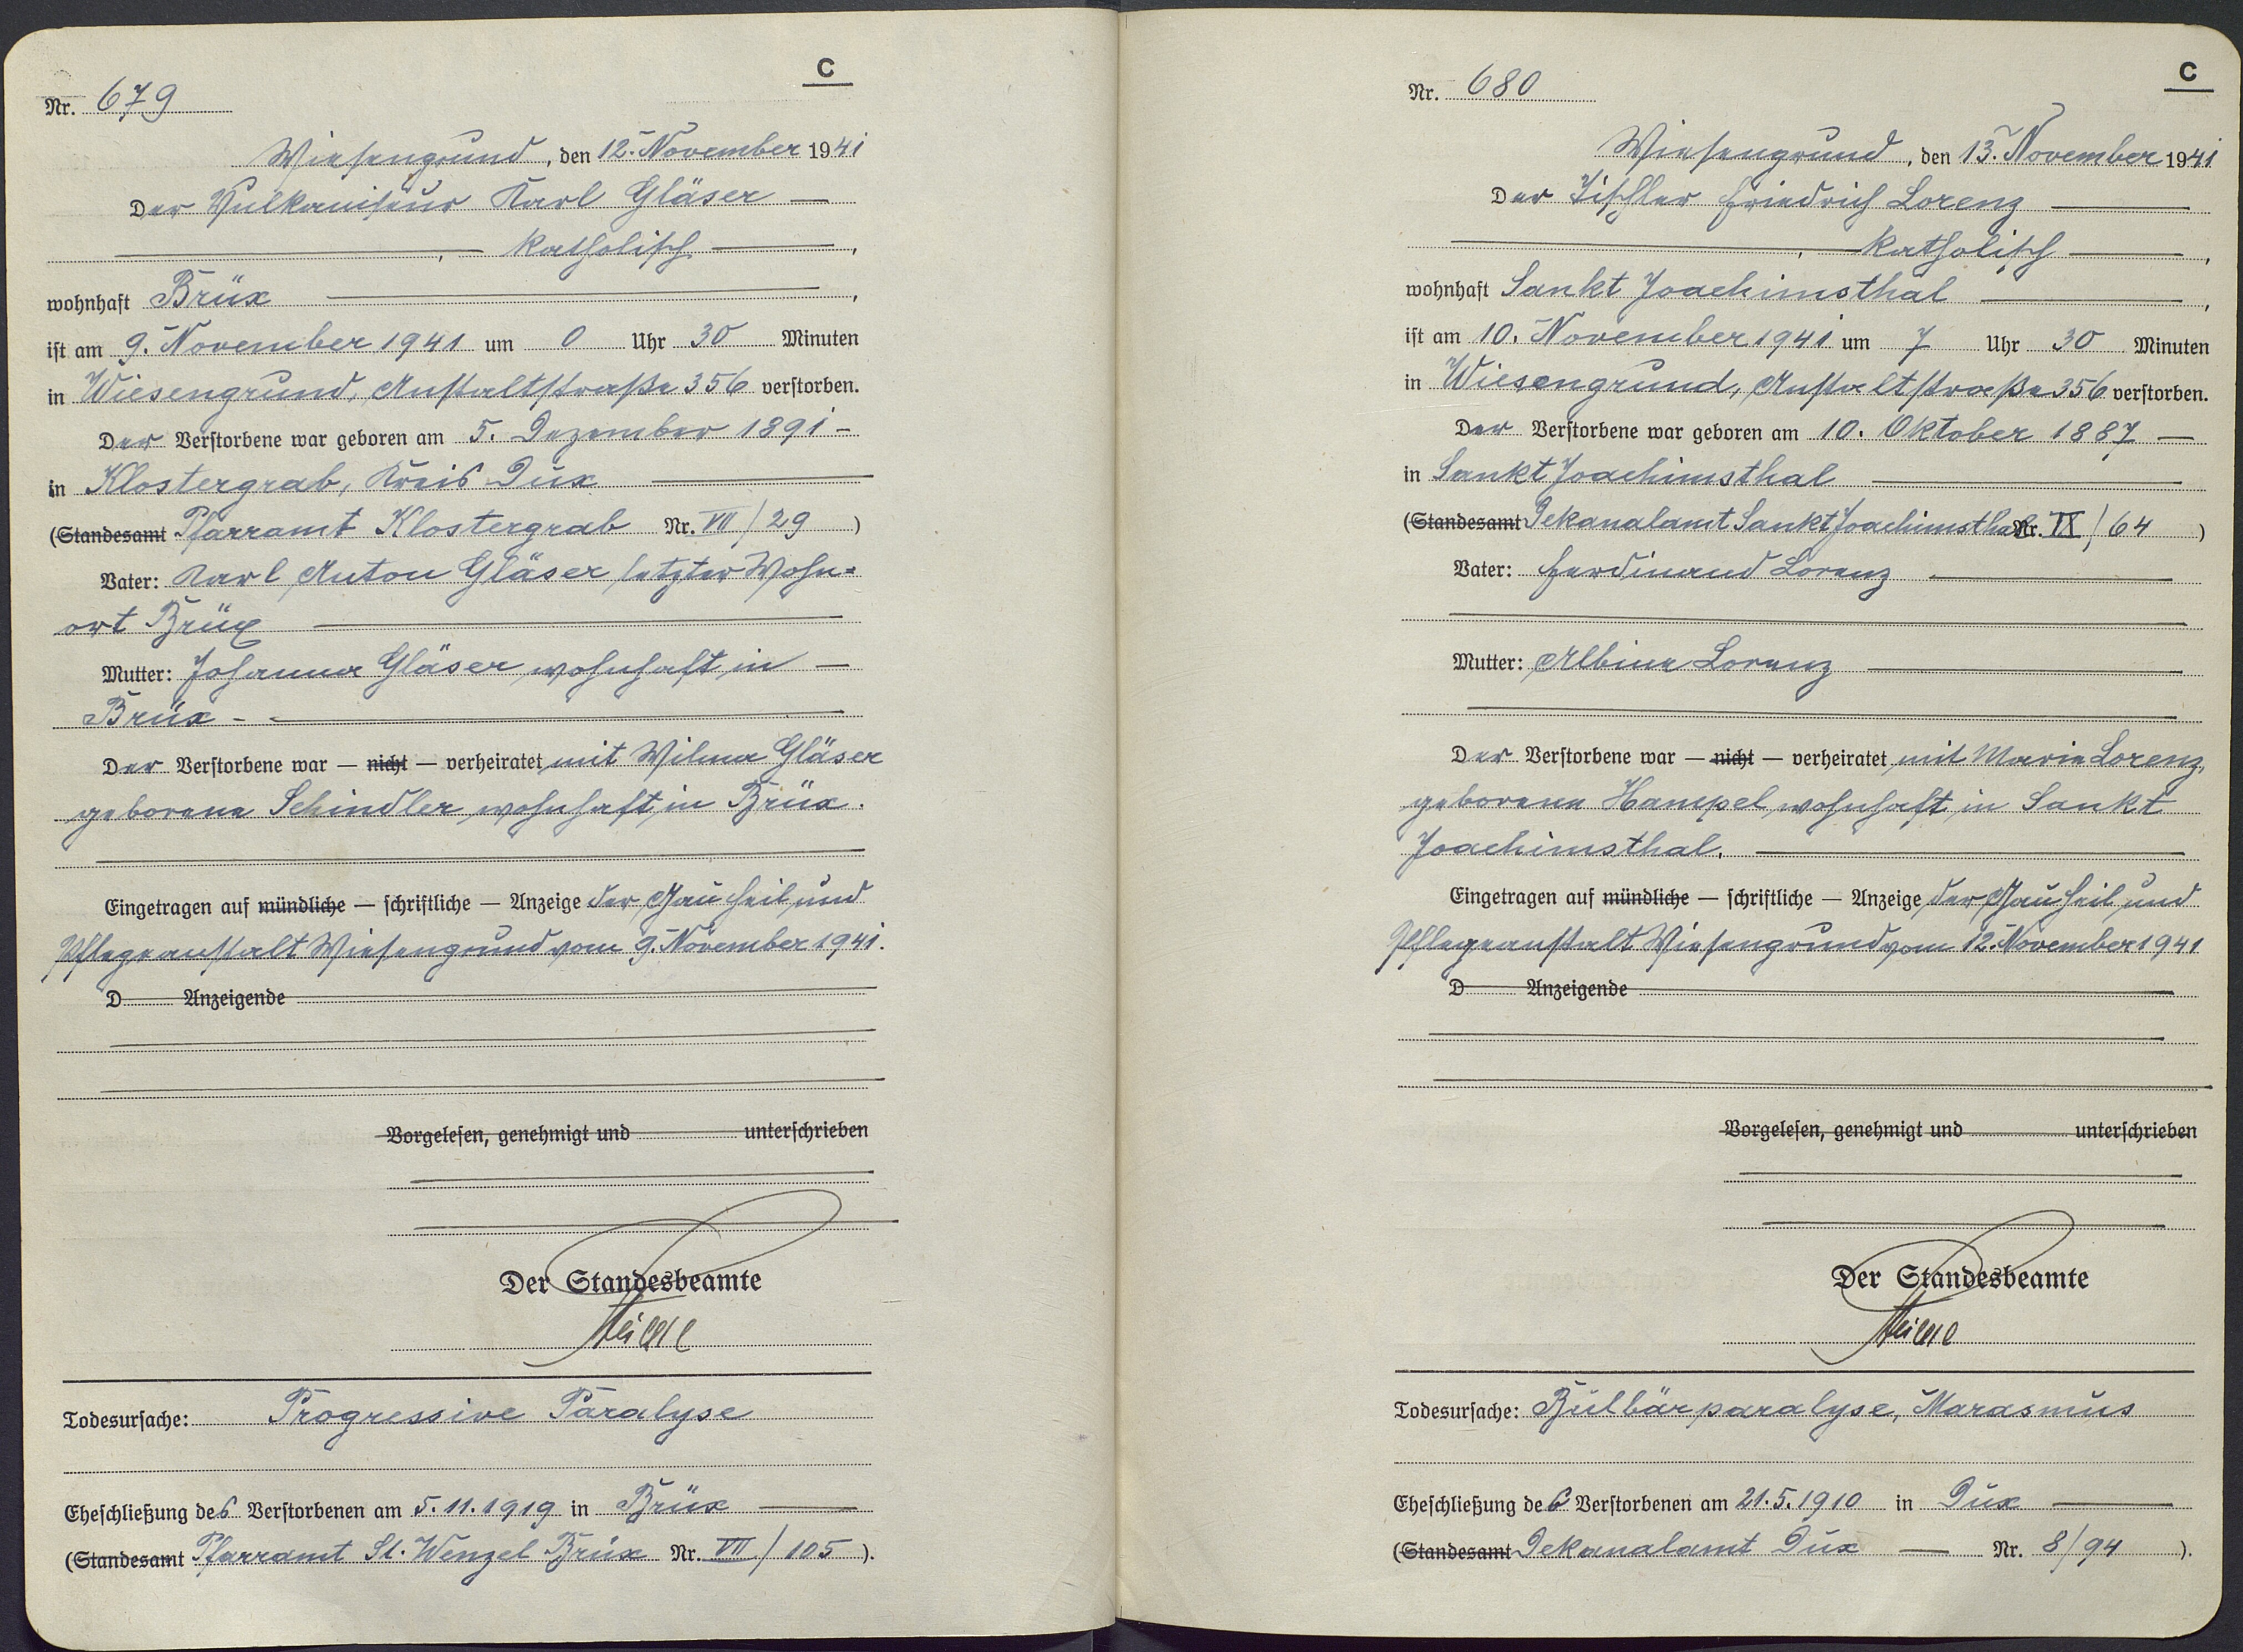 C
Nr. 679
Wiesengrund, den 12. November 1941
Der Vulkaniseur Karl Gläser —
—, katholisch —,
wohnhaft Brüx —,
ist am 9. November 1941 um 0 Uhr 30 Minuten
in Wiesengrund, Anstaltstraße 356 verstorben.
Der Verstorbene war geboren am 5. Dezember 1891 —
in Klostergrab, Kreis Dux —
(Standesamt Pfarramt Klostergrab Nr. VII/29)
Vater: Karl Anton Gläser letzter Wohn=
ort Brüx —
Mutter: Johanna Gläser, wohnhaft in —
Brüx - —
Der Verstorbene war — nicht — verheiratet mit Wilma Gläser
geborene Schindler, wohnhaft in Brüx.
Eingetragen auf mündliche — schriftliche — Anzeige der Gau Heil und
Pflegeanstalt Wiesengrund vom 9. November 1941.
D Anzeigende
Vorgelesen, genehmigt und unterschrieben
Der Standesbeamte
Todesursache: Progressive Paralyse
Eheschließung des Verstorbenen am 5.11.1919 in Brüx —
(Standesamt Pfarramt St. Wenzel Brüx Nr. VII/105).
C
Nr. 680
Wiesengrund, den 13. November 1941
Der Tischler Friedrich Lorenz —
—, katholisch —,
wohnhaft Sankt Joachimsthal —,
ist am 10. November 1941 um 7 Uhr 30 Minuten
in Wiesengrund, Anstaltstraße 356 verstorben.
Der Verstorbene war geboren am 10. Oktober 1887 —
in Sankt Joachimsthal —
(Standesamt Dekanalamt Sankt Joachimsthal Nr. IX/64)
Vater: Ferdinand Lorenz —
Mutter: Albina Lorenz —
Der Verstorbene war — nicht — verheiratet mit Marie Lorenz,
geborene Hampel, wohnhaft in Sankt
Joachimsthal. —
Eingetragen auf mündliche — schriftliche — Anzeige der Gau Heil und
Pflegeanstalt Wiesengrund vom 12. November 1941
D Anzeigende
Vorgelesen, genehmigt und unterschrieben
Der Standesbeamte
Todesursache: Bulbärparalyse, Marasmus
Eheschließung des Verstorbenen am 21.5.1910 in Dux —
(Standesamt Dekanalamt Dux — Nr. 8/94).